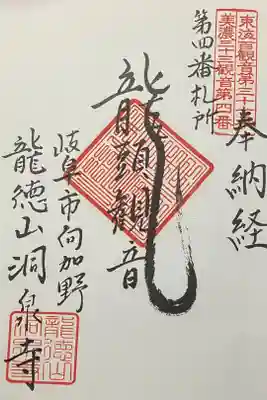 東海百観音第三十
美濃三十三観音第四番
奉納経
第四番札所
龍頭観音
岐阜市向加野
龍徳山洞泉寺